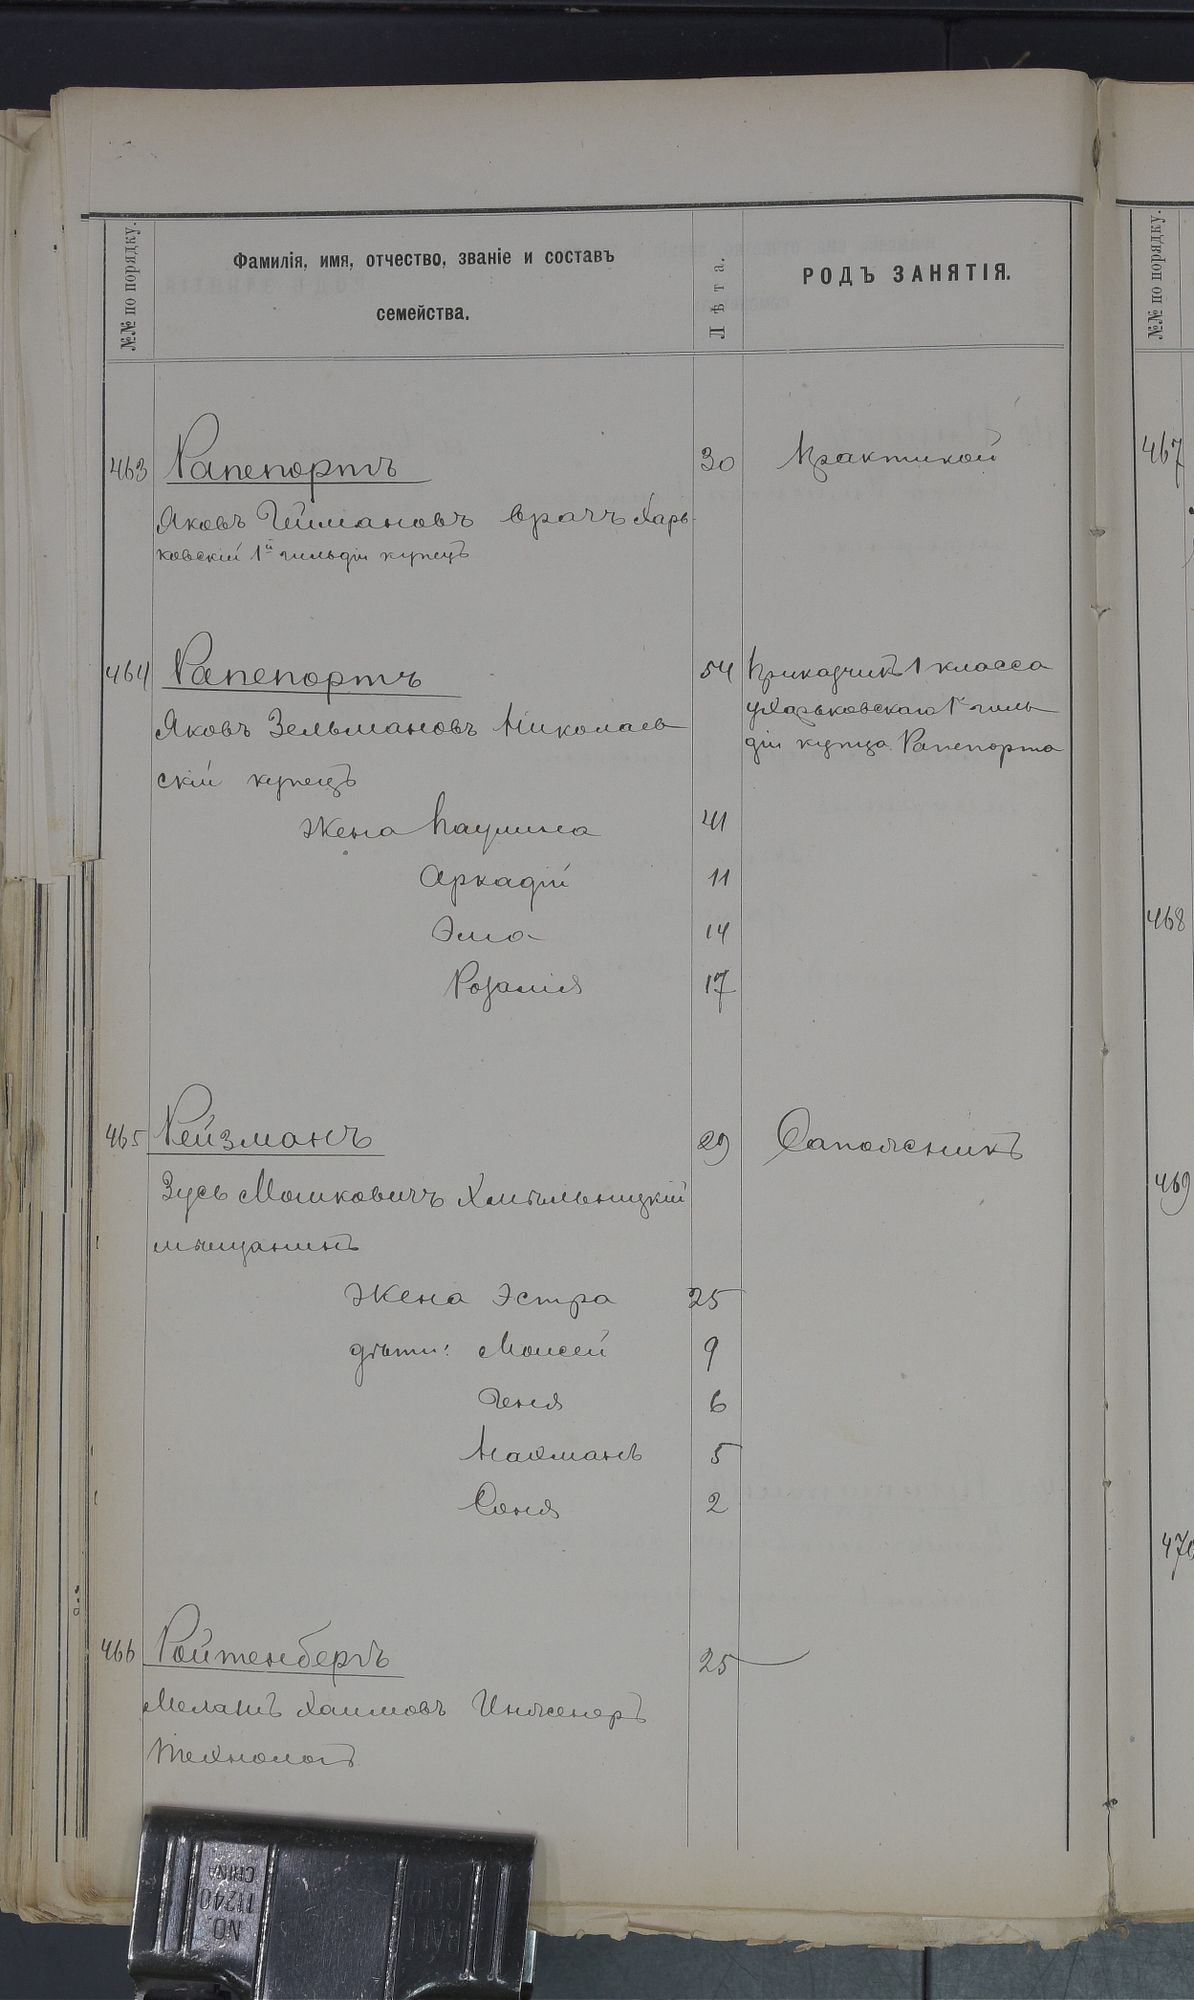 №№ по порядку.
Фамилія, имя, отчество, званіе и составъ
семейства.
Лѣта.
РОДЪ ЗАНЯТІЯ.
463 Рапепортъ 30 Практикой
Яковъ Геймановъ врачъ Харь-
ковскій 1й гильдіи купецъ
464 Рапепортъ 54 Приказчикъ 1 класса
Яковъ Зельмановъ Николаев у Харьковскаго 1й гиль
скій купецъ діи купца Рапепорта
Жена Паулина 41
Аркадій 11
Эма 14
Розалія 17
465 Рейзманъ 29 Сапожникъ
Зусь Мошковичъ Хмѣльницкій
мѣщанинъ
Жена Эстра 25
дѣти: Моисей 9
Геня 6
Нахманъ 5
Соня 2
466 Ройтенбергъ 25 —
Меланъ Хаимовъ Инженеръ
Технологъ
№№ по порядку.
467
468
469
470
NO.
11240
CHINA